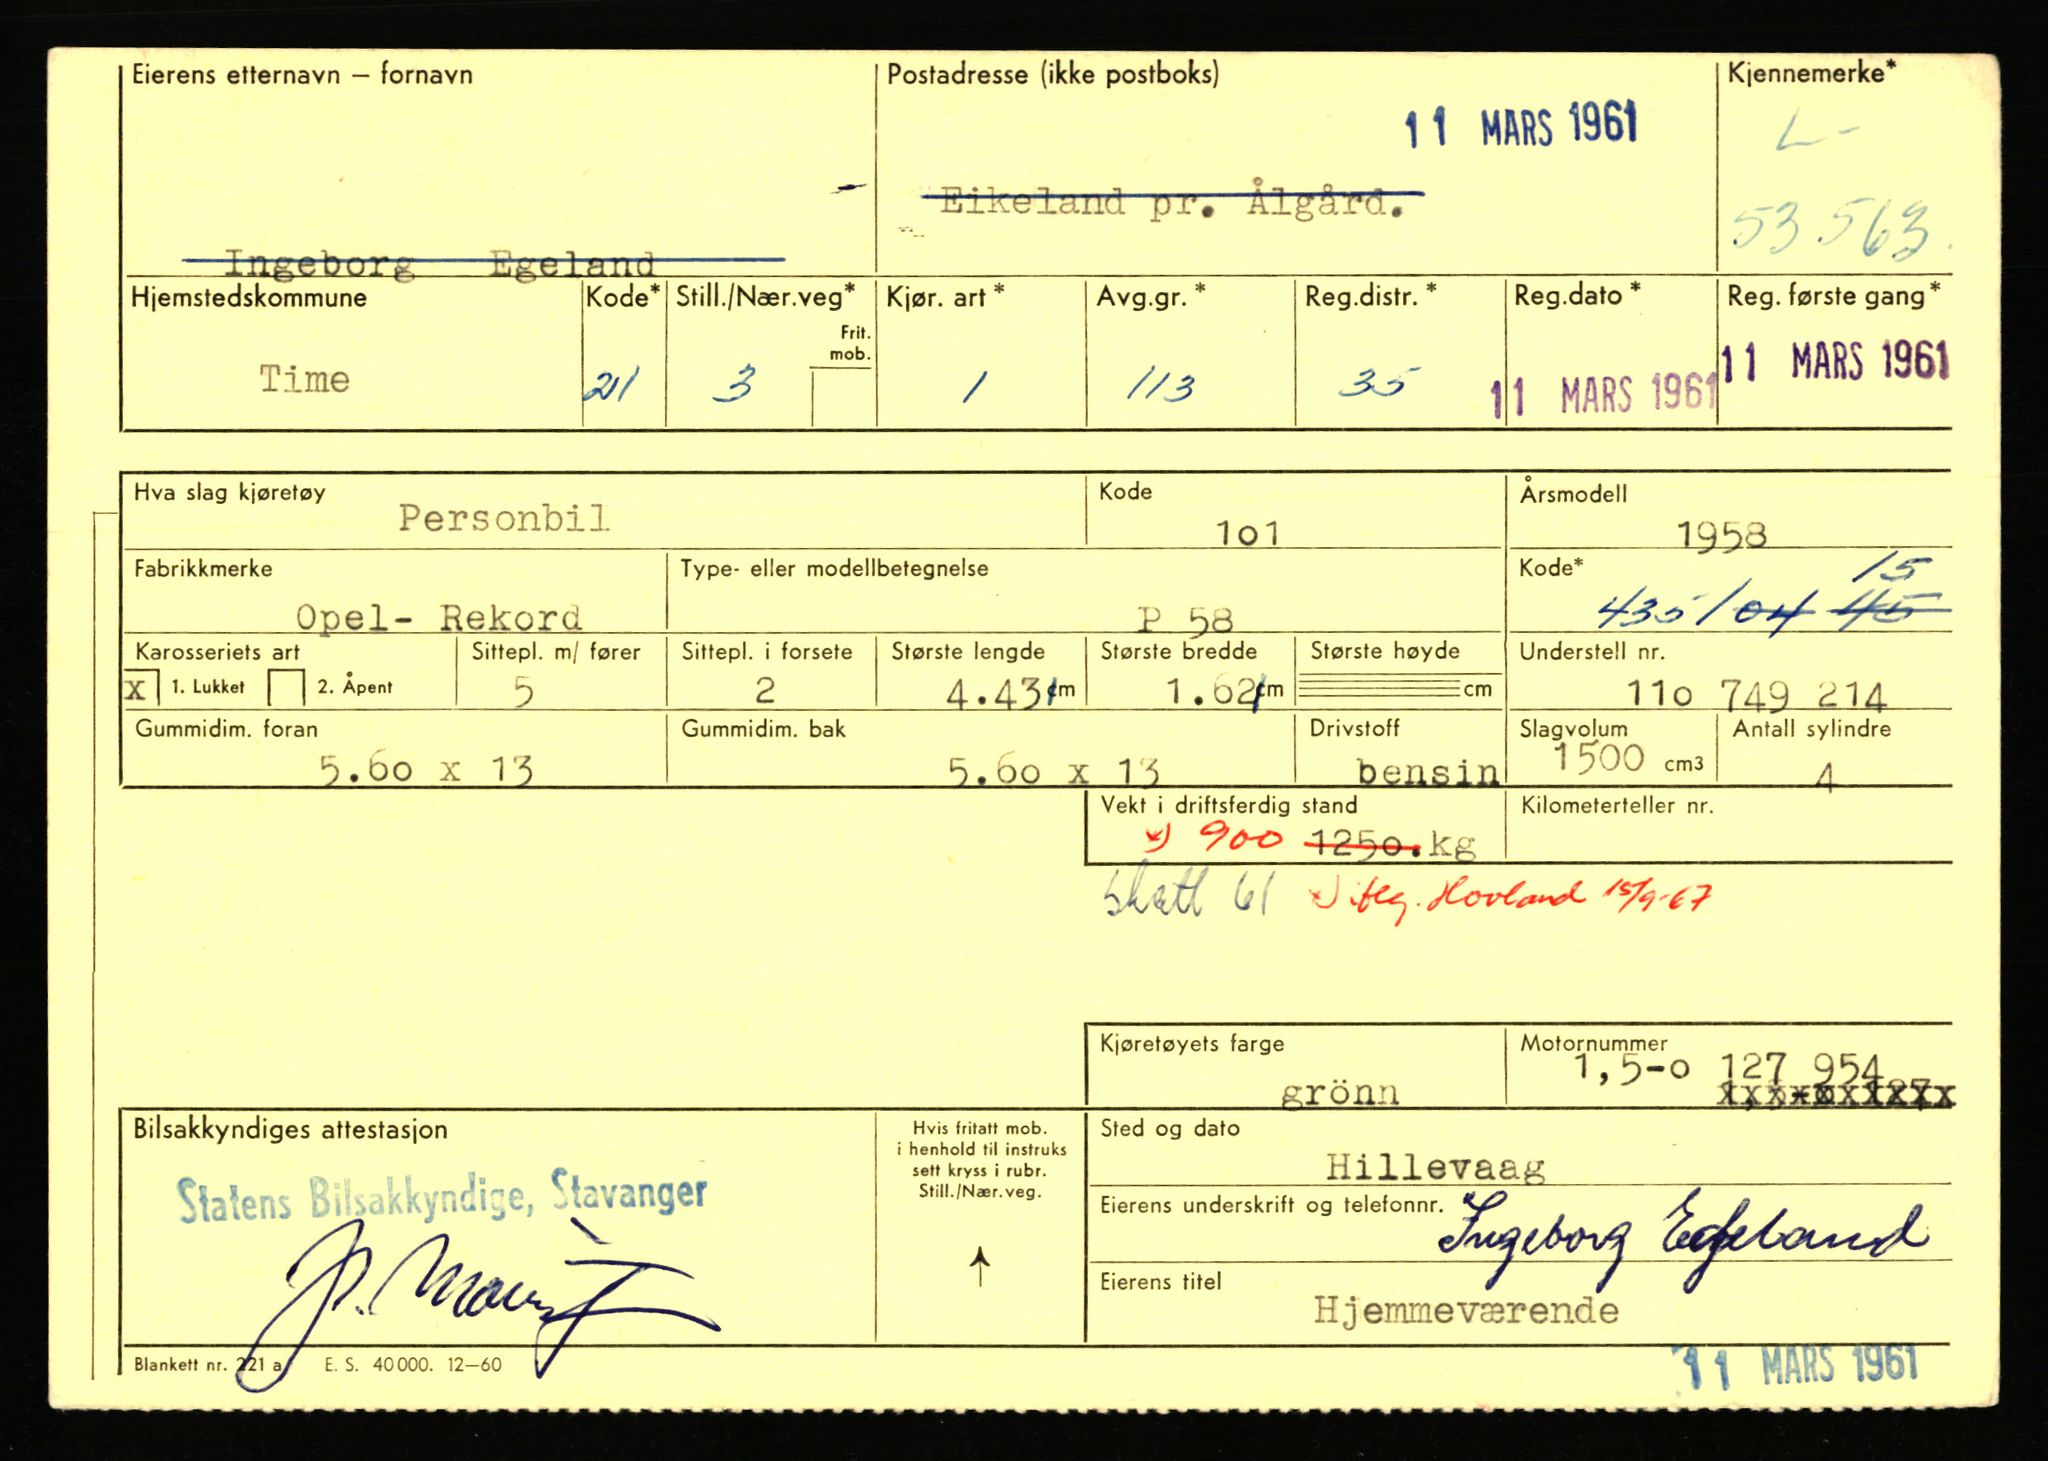 Eierens etternavn – fornavn
Postadresse (ikke postboks)
Kjennemerke*
11 MARS 1961
L-
Eikeland pr. Ålgård.
53.563.
Ingeborg Egeland
Hjemstedskommune
Kode*
Still./Nær.veg*
Kjør. art *
Avg.gr. *
Reg.distr. *
Reg.dato *
Reg. første gang*
Frit.
mob.
Time
21
3
1
113
35
11 MARS 1961
11 MARS 1961
Hva slag kjøretøy
Kode
Årsmodell
Personbil
101
1958
Fabrikkmerke
Type- eller modellbetegnelse
Kode*
15
Opel- Rekord
P 58
435/04 45
Karosseriets art
Sittepl. m/ fører
Sittepl. i forsete
Største lengde
Største bredde
Største høyde
Understell nr.
X 1. Lukket
2. Åpent
5
2
4.43 cm
1.62 cm
cm
110 749 214
Gummidim. foran
Gummidim. bak
Drivstoff
Slagvolum
Antall sylindre
5.60 x 13
5.60 x 13
bensin
1500 cm3
4
Vekt i driftsferdig stand
Kilometerteller nr.
x) 900 1250. kg
skatt 61
x) iflg. Hovland 15/9-67
Kjøretøyets farge
Motornummer
1,5-0 127 954
grönn
Bilsakkyndiges attestasjon
Hvis fritatt mob.
i henhold til instruks
sett kryss i rubr.
Still./Nær.veg.
Sted og dato
Hillevaag
Statens Bilsakkyndige, Stavanger
Eierens underskrift og telefonnr.
Ingeborg Egeland
Eierens titel
Hjemmeværende
Blankett nr. 221 a
E. S. 40 000. 12–60
11 MARS 1961